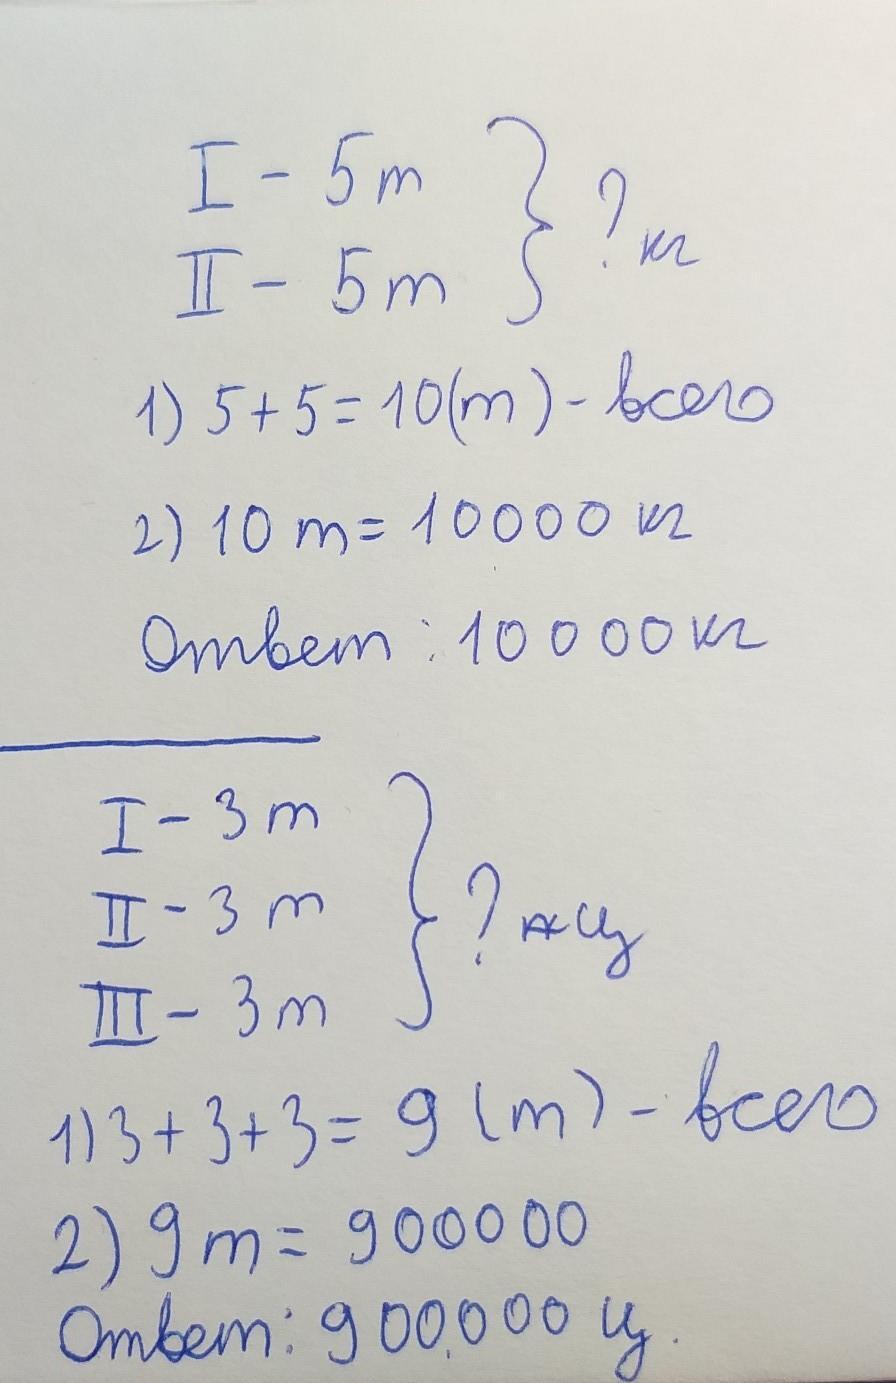 I - 5т
II - 5т
? кг
1) 5+5=10(т) - всего
2) 10 т = 10000 кг
Ответ: 10000 кг
I - 3 т
II - 3 т
III - 3 т
? ц
1) 3+3+3= 9 (т) - всего
2) 9 т = 900000
Ответ: 900000 ц.